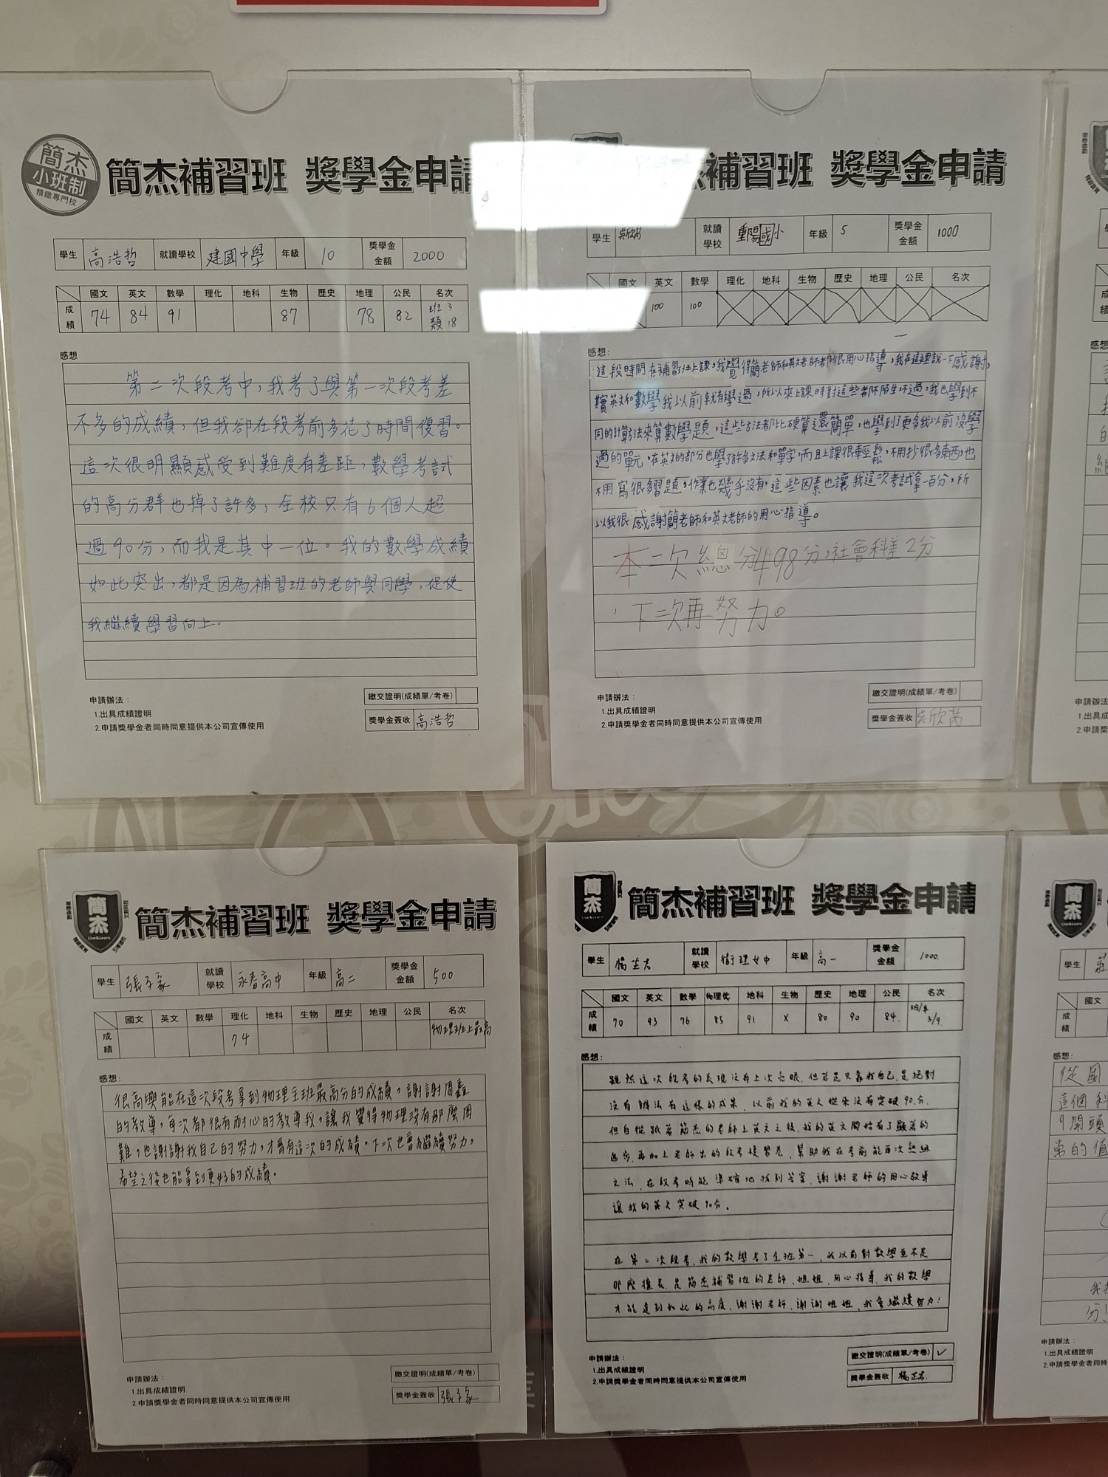 簡杰
小班制
簡杰補習班 獎學金申請
學生 高浩哲 就讀學校 建國中學 年級 10 獎學金金額 2000
國文 英文 數學 理化 地科 生物 歷史 地理 公民 名次
成績 74 84 91 87 78 82 班 3 類 18
感想:
第二次段考中,我考了與第一次段考差
不多的成績,但我卻在段考前多花了時間復習。
這次很明顯感受到難度有差距,數學考試
的高分群也掉了許多,全校只有6個人超
過90分,而我是其中一位。我的數學成績
如此突出,都是因為補習班的老師與同學,促使
我繼續學習向上.
申請辦法:
1.出具成績證明
2.申請獎學金者同時同意提供本公司宣傳使用
繳交證明(成績單/考卷)
獎學金簽收 高浩哲
補習班 獎學金申請
學生 就讀學校 國小 年級 5 獎學金金額 1000
國文 英文 數學 理化 地科 生物 歷史 地理 公民 名次
100 100
感想:
這段時間在補習班上課,我覺得簡老師和英文老師都很用心指導,我在這裡說一下感謝,
英文和數學我以前就有學過,所以來上課時對這些都不陌生,我也學到不
同的計算方法來算數學題,這些方法都比硬算還簡單,也學到了更多我以前沒學
過的單元,在英文的部分也學了許多文法和單字,而且上課很輕鬆,不用抄很多東西,也
不用寫很多習題,作業也幾乎沒有,這些因素也讓我這次考試拿一百分,所
以我很感謝簡老師和英文老師的用心指導。
本一次總分498分,社會科差2分
下次再努力。
申請辦法:
1.出具成績證明
2.申請獎學金者同時同意提供本公司宣傳使用
繳交證明(成績單/考卷)
獎學金簽收
簡杰
簡杰補習班 獎學金申請
學生 張子豪 就讀學校 永春高中 年級 高二 獎學金金額 500
國文 英文 數學 理化 地科 生物 歷史 地理 公民 名次
成績 74 物理班上最高
感想:
很高興能在這次段考拿到物理全班最高分的成績。謝謝周
的教導,每次都很有耐心的教導我,讓我覺得物理沒有那麼困
難,也謝謝我自己的努力,才會有這次的成績。下次也會繼續努力,
希望之後也能拿到更好的成績。
申請辦法:
1.出具成績證明
2.申請獎學金者同時同意提供本公司宣傳使用
繳交證明(成績單/考卷)
獎學金簽收 張子豪
簡杰
簡杰補習班 獎學金申請
學生 楊 就讀學校 女中 年級 高一 獎學金金額 1000
國文 英文 數學 物理化 地科 生物 歷史 地理 公民 名次
成績 70 93 76 85 91 X 80 90 84 3/9
感想:
雖然這次段考的表現沒有上次亮眼,但若是只靠我自己,是絕對
沒有辦法有這樣的成果,以前我的英文從來沒有突破90分,
但自從跟著簡杰的老師上英文之後,我的英文開始有了顯著的
進步,再加上老師出的段考複習卷,幫助我在考前能再次熟練
文法,在段考時能準確地找到答案,謝謝老師的用心教導
讓我的英文突破90分。
在第一次段考,我的數學考了全班第一,我以前對數學並不是
那麼擅長,是簡杰補習班的老師、姐姐,用心指導,我的數學
才能達到如此的高度,謝謝老師,謝謝姐姐,我會繼續努力!
申請辦法:
1.出具成績證明
2.申請獎學金者同時同意提供本公司宣傳使用
繳交證明(成績單/考卷) ✓
獎學金簽收